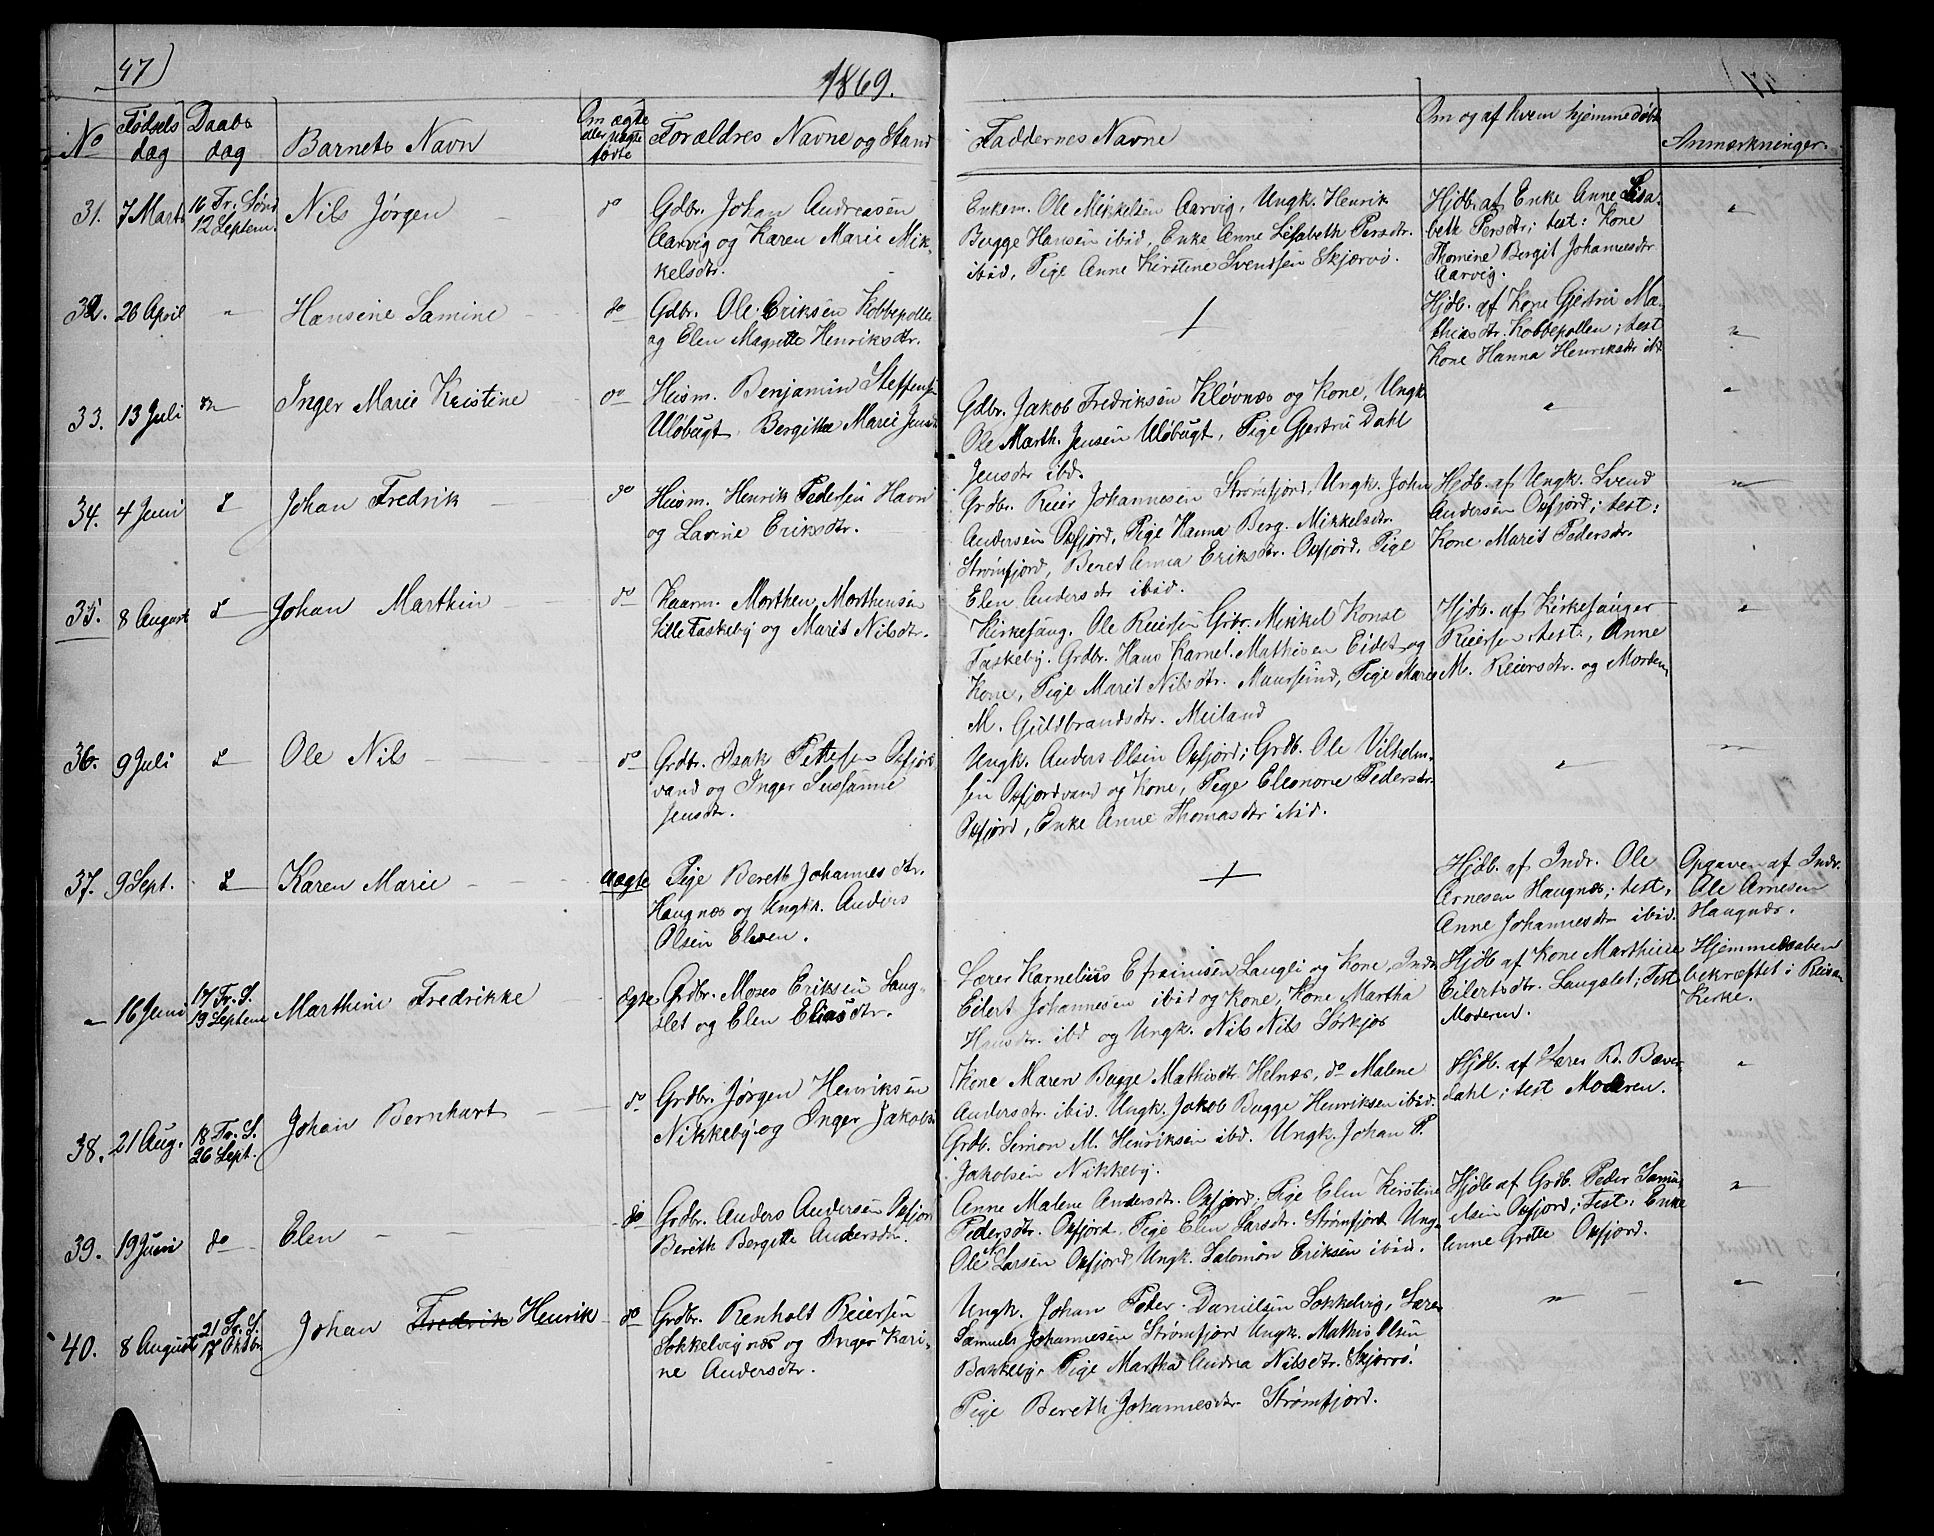 47)
1869.
No
Fødsels
dag
Daabs
dag
Barnets Navn
Om ægte
eller uægte
fødte
Forældres Navne og Stand
Faddernes Navne
Om og af hvem hjemmedøbt
Anmærkninger.
31. 7 Marts 16 Fr. Sønd 12 Septem. Nils Jørgen do
Gdbr. Johan Andreasen
Aarvig og Karen Marie Mik-
kelsdtr.
Enkem. Ole Mikkelsen Aarvig, Ungk. Henrik
Bugge Hansen ibid, Enke Anne Lisabeth Persdtr.
ibid, Pige Anne Kirstine Svendsen Skjærvø.
Hjdb. af Enke Anne Lisa-
beth Persdtr; test: Kone
Thomine Bergit Johannesdtr
Aarvig.
"
32. 26 April " Hansine Samine do
Gdbr. Ole Eriksen Kobbepollen
og Elen Magrette Henriksdtr.
+
Hjdb. af Kone Gjertru Ma-
thiasdtr. Kobbepollen; test
Kone Hanna Henriksdtr ibd
"
33. 13 Juli do Inger Marie Kristine do
Husm. Benjamin Steffensen
Uløbugt, Bergitte Marie Jensd
Gdbr. Jakob Fredriksen Kløvnæs og Kone, Ungk.
Ole Marth. Jensen Uløbugt, Pige Gjertru Dahl
Jensdtr ibd.
"
"
34. 4 Juni Johan Fredrik do
Husm. Henrik Pedersen Havn
og Lavine Eriksdtr.
Grdbr. Reier Johannesen Strømfjord, Ungk. John
Andersen Oxfjord, Pige Hanna Berg. Mikkelsdtr.
Strømfjord, Beret Anna Eriksdtr. Oxfjord, Pige
Elen Andersdtr ibid.
Hjdb. af Ungk. Svend
Andersen Oxfjord; test:
Kone Marit Pedersdtr.
"
35. 8 August Johan Marthin do
Kaarm. Morthen Morthensen
Lille Taskeby og Marit Nilsdtr.
Kirkesang. Ole Reiersen Grbr. Mikkel Konst
Taskeby. Grdbr. Hans Karnel. Mathisen Eidet og
Kone, Pige Marit Nilsdtr. Maursund, Pige Maren
M. Guldbrandsdtr. Meiland
Hjdb. af Kirkesanger
Reiersen test., Anne
M. Reiersdtr. og Moderen
"
36. 9 Juli Ole Nils do
Grdbr. Isak Pettersen Oxfjord-
vand og Inger Susanne
Jensdtr.
Ungk. Anders Olsen Oxfjord; Grdb. Ole Vilhelm-
sen Oxfjordvand og Kone, Pige Eleonore Pedersdtr
Oxfjord, Enke Anne Thomasdtr ibid.
"
"
37. 9 Sept. Karen Marie uægte
Pige Bereth Johannesdtr.
Haugnæs og Ungk. Anders
Olsen Elven.
+
Hjdb. af Indr. Ole
Arnesen Haugnæs; test,
Anne Johannesdtr ibid.
Opgaven af Indr.
Ole Arnesen
Haugnæs.
" 16 Juni 17 Fr. S. 19 Septem Marthine Fredrikke ægte
Grdbr. Moses Eriksen Lang-
slet og Elen Eliasdtr.
Lærer Karnelius Efraimsen Langli og Kone, Indr
Eilert Johannesen ibid og Kone, Kone Martha
Hansdtr. ibd og Ungk. Nils Nils Sørkjos
Hjdb af Kone Marthine
Eilertsdtr. Langslet, Test
Moderen.
Hjemmedaaben
bekræftet i Reisa
Kirke.
38. 21 Aug. 18 Fr. S. 26 Sept. Johan Bernhart do
Grdbr. Jørgen Henriksen
Nikkeby og Inger Jakobs
Kone Maren Bugge Mathisdtr. Helnæs, do Malene
Andersdtr. ibid. Ungk. Jakob Bugge Henriksen ibid.
Grdb. Simon M. Henriksen ibd. Ungk. Johan P.
Jakobsen Nikkeby.
Hjdb. af Lærer Bæver-
dahl; test Moderen.
"
39. 19 Juni do Elen do
Grdbr. Anders Andersen Oxfjord
Bereth Bergitte Andersdtr.
Anne Malene Andersdtr. Oxfjord. Pige Elen Kirstine
Pedersdtr. Oxfjord. Pige Elen Larsdtr. Strømfjord Ungk
Ole Larsen Oxfjord Ungk. Salomon Eriksen ibid.
Hjdb af Grdb. Peder Samu-
elsen Oxfjord; Test: Enke
Anne Grette Oxfjord.
"
40. 8 August 21 Fr. S. 17 Oktbr Johan Fredrik Henrik do
Grdbr. Renholt Reiersen
Sokkelvignæs og Inger Kari-
ne Andersdtr.
Ungk. Johan Peter Danielsen Sokkelvig, Lærer
Samuels Johannesen Strømfjord Ungk. Mathis Olsen
Bakkeby, Pige Martha Andrea Nilsdtr. Skjærvø.
Pige Bereth Johannesdtr. Strømfjord.
"
"